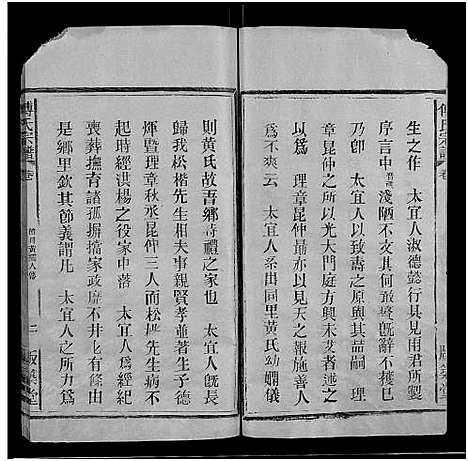 傅氏宗譜 卷
生之作　太宜人淑德懿行具見雨君所製
序言中曾淺陋不文其何敢辭旣辭不獲已
乃卽　太宜人以致壽之原與其喆嗣　理
章昆仲之所以光大門庭方興未艾者述之
爲　理章昆仲勖亦以見天之報施善人
爲不爽云　太宜人系出同里黃氏幼嫻儀
則黃氏故吾鄉詩禮之家　太宜人旣長
歸我松楷先生相夫事親賢孝並著生子德
煇暨理章秋丞昆仲三人而松楷先生病不
起時經洪楊之役家中落　太宜人爲經紀
喪葬撫育諸孤摒擋家政靡不井化有餘由
是鄉里欽其節義謂凡　太宜人之所力爲
傅氏宗譜 卷
二
版築堂